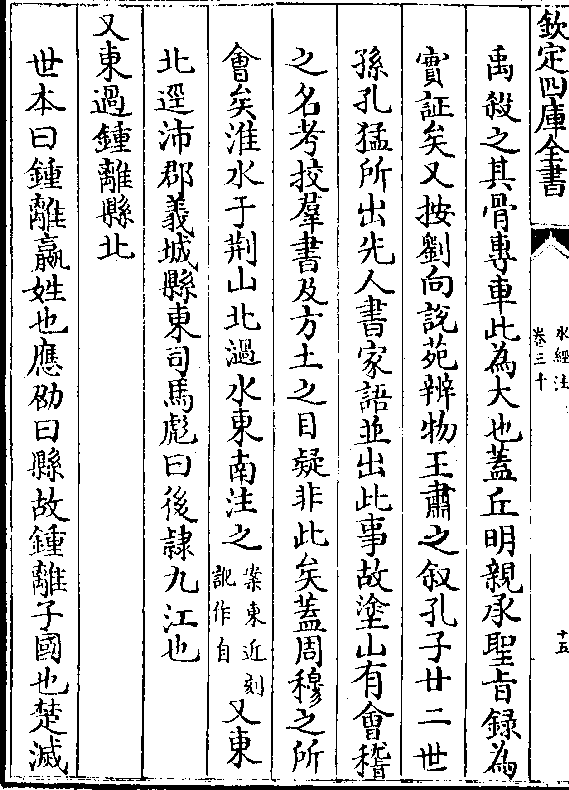 欽定四庫全書
水經注
卷三十
十五
禹殺之其骨專車此為大也蓋丘明親承聖旨録為
實証矣又按劉向說苑辨物王肅之叙孔子廿二世
孫孔猛所出先人書家語並出此事故塗山有會稽
之名考挍羣書及方土之目疑非此矣蓋周穆之所
會矣淮水于荆山北濄水東南注之案東近刻訛作自又東
北逕沛郡義城縣東司馬彪曰後隷九江也
又東過鍾離縣北
世本曰鍾離嬴姓也應劭曰縣故鍾離子國也楚滅